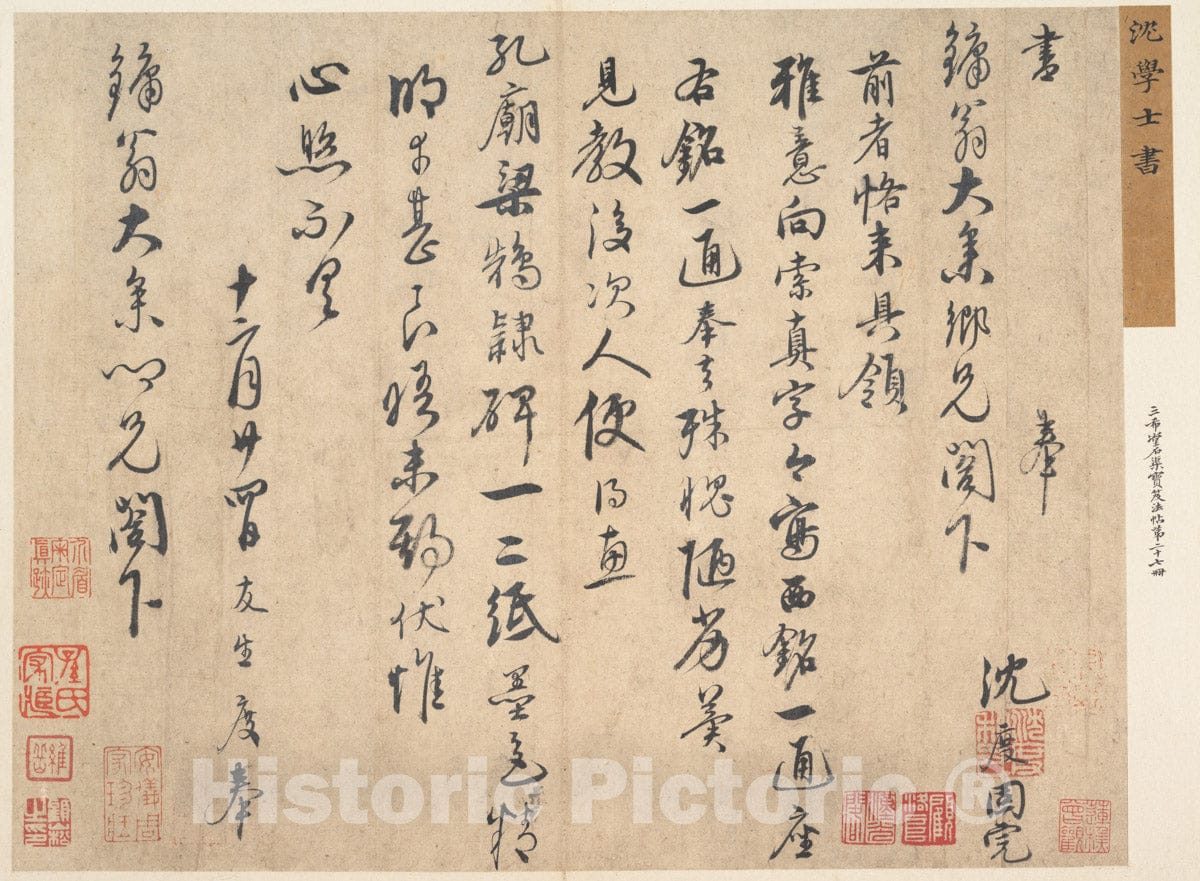 沈學士書
三希堂石渠寶笈法帖第二十七冊
書 奉 沈度固完
鏞翁大參鄉兄閣下
前者恪来具領
雅意向索真字今寫西銘一通座
右銘一通奉去殊愧陋劣冀
見教後次人便得惠
孔廟梁鵠隸碑一二紙墨色精
明幸甚良晤未期伏惟
心照不具
十二月廿四日友生度奉
鏞翁大參鄉兄閣下
Historic Pictoric ®